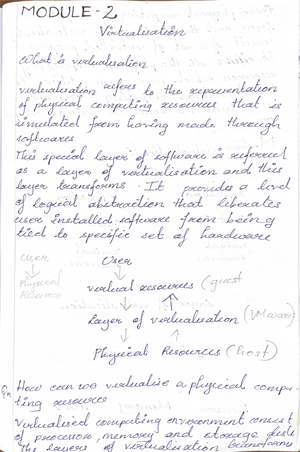 MODULE - 2
Virtualisation
What is virtualisation,
virtualisation refers to the representation
of physical computing resources that is
simulated from having made through
softwares
This special layer of software is referred
as a layer of virtualisation and this
layer transforms. It provides a level
of logical abstraction that liberates
user installed software from being
tied to specific set of hardware
User User
Physical
Resource
virtual resources (guest
Layer of virtualisation (VMware)
Physical Resources (host)
How can we virtualise a physical compu-
ting resource
Virtualised computing environment consist
of processor, memory and storage
The layers of virtualisation transforms